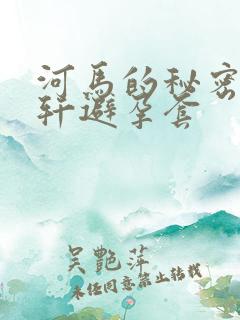 河马的秘密
轩避孕套
吴艳萍
未经同意禁止转载